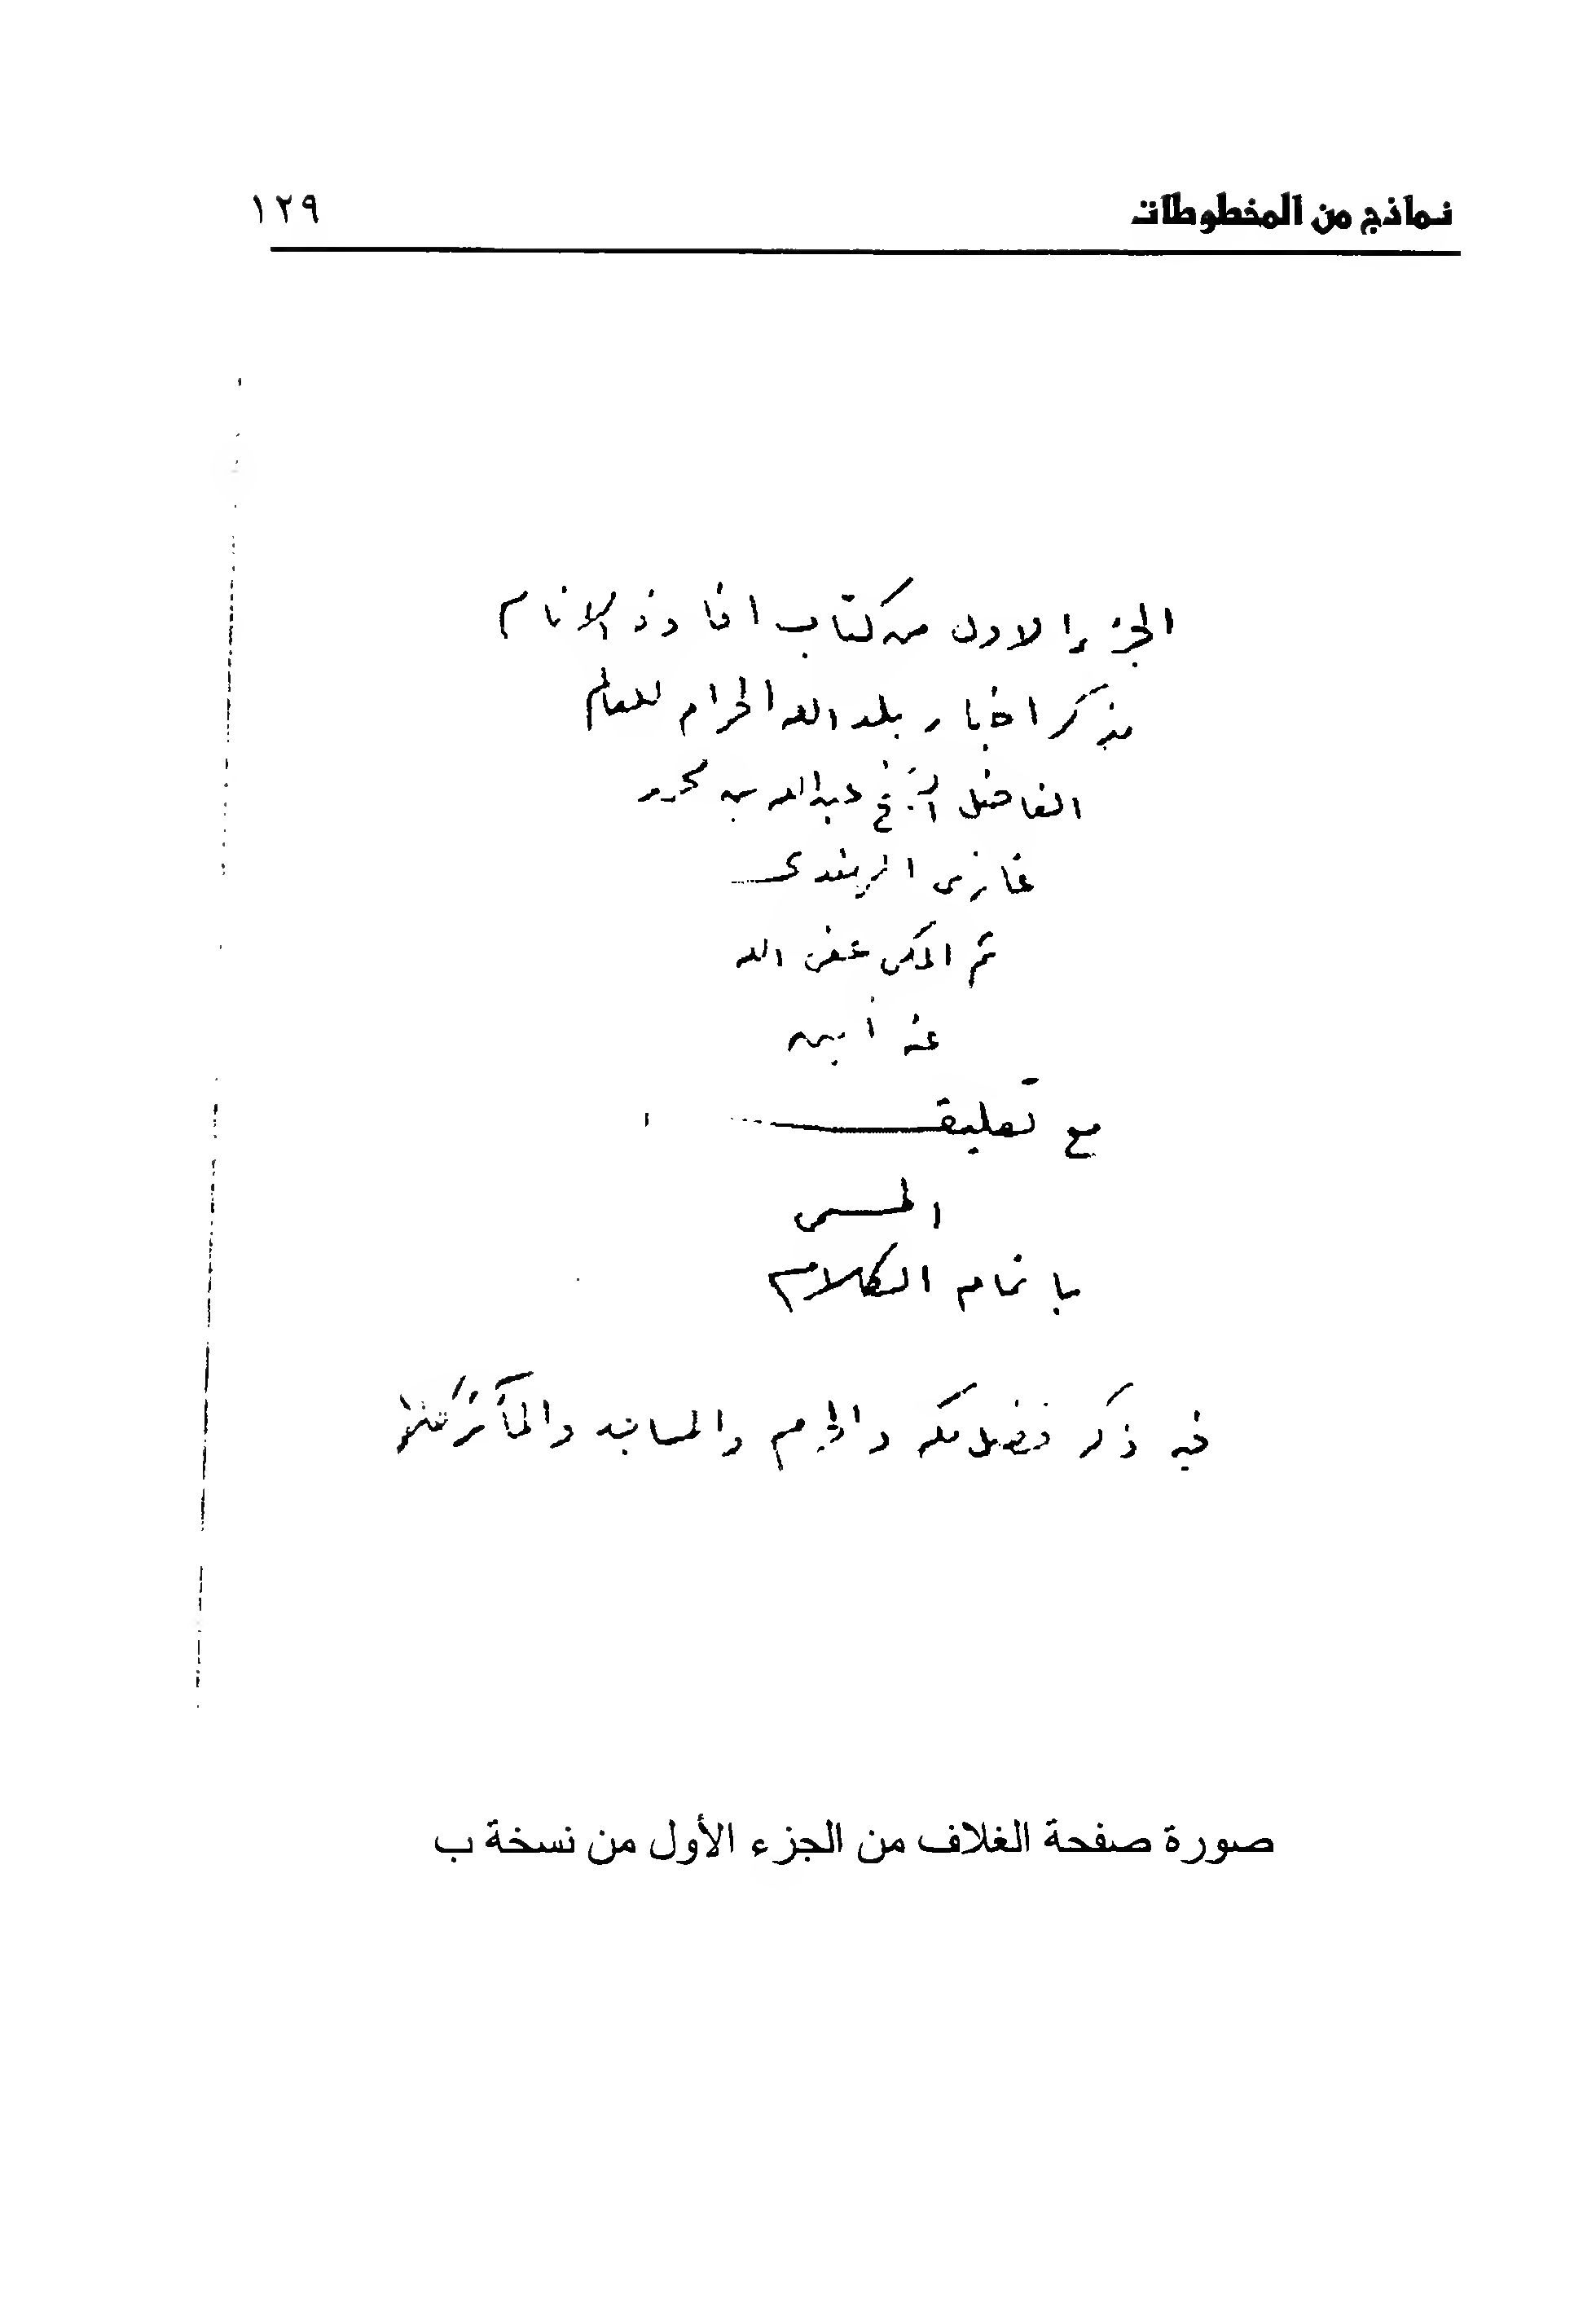 نماذج من المخطوطات ١٢٩
الجزء الاول من كتاب افادة الانام
بذكر اخبار بلد الله الحرام للعالم
الفاضل الشيخ عبدالله بن محمد
غازى الهندى
ثم المكى عفى الله
عنه أمين
مع تعليقه
المسمى
باتمام الكلام
فيه ذكر فضل مكه والحرم والمساجد والمآثر
صورة صفحة الغلاف من الجزء الأول من نسخة ب